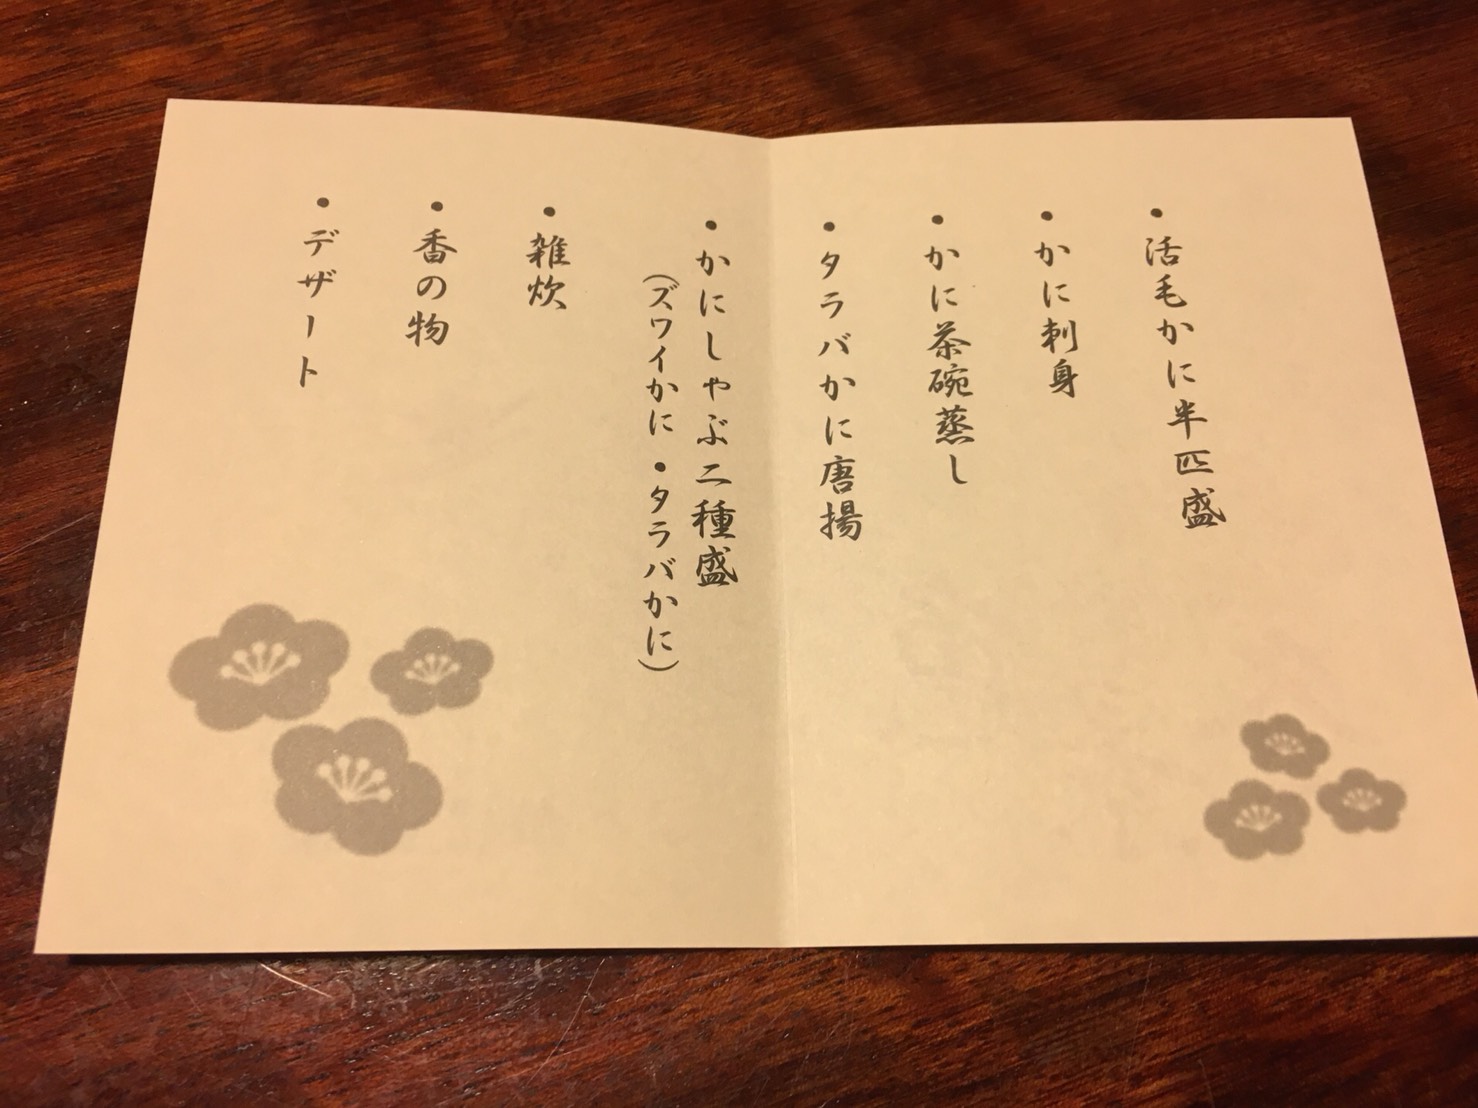 ・活毛かに半匹盛
・かに刺身
・かに茶碗蒸し
・タラバかに唐揚
・かにしゃぶ二種盛
(ズワイかに・タラバかに)
・雑炊
・香の物
・デザート